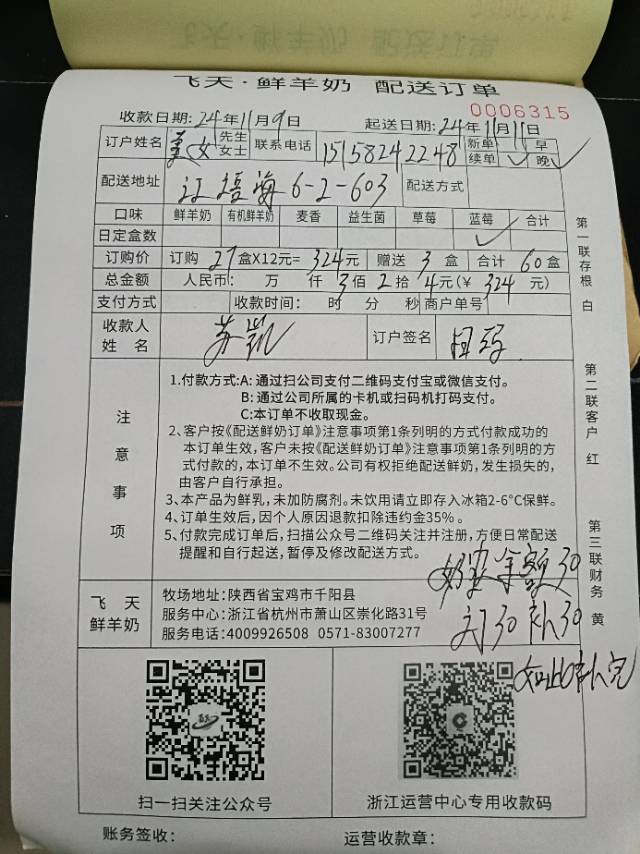 飞天·鲜羊奶 配送订单
0006315
收款日期:24年11月9日 起送日期:24年11月11日
订户姓名 姜女 先生 女士 联系电话 15158242248 新单 续单 ✓ 早 晚 ✓
配送地址 江语海6-2-603 配送方式
口味 鲜羊奶 有机鲜羊奶 麦香 益生菌 草莓 蓝莓 合计
日定盒数 ✓
订购价 订购27盒X12元=324元 赠送3盒 合计60盒
总金额 人民币: 万 仟3佰2拾4元(¥324元)
支付方式 收款时间: 时 分 秒 商户单号
收款人 姓名 苏凯 订户签名
注意事项
1.付款方式:A: 通过扫公司支付二维码支付宝或微信支付。
B: 通过公司所属的卡机或扫码机打码支付。
C:本订单不收取现金。
2、客户按《配送鲜奶订单》注意事项第1条列明的方式付款成功的
本订单生效,客户未按《配送鲜奶订单》注意事项第1条列明的方
式付款的,本订单不生效。公司有权拒绝配送鲜奶,发生损失的,
由客户自行承担。
3、本产品为鲜乳,未加防腐剂。未饮用请立即存入冰箱2-6°C保鲜。
4、订单生效后,因个人原因退款扣除违约金35%。
5、付款完成订单后,扫描公众号二维码关注并注册,方便日常配送
提醒和自行起送,暂停及修改配送方式。
奶款余额30
订30补30
如此补完
飞天 鲜羊奶
牧场地址:陕西省宝鸡市千阳县
服务中心:浙江省杭州市萧山区崇化路31号
服务电话:4009926508 0571-83007277
扫一扫关注公众号 浙江运营中心专用收款码
账务签收: 运营收款章:
第一联存根 白
第二联客户 红
第三联财务 黄